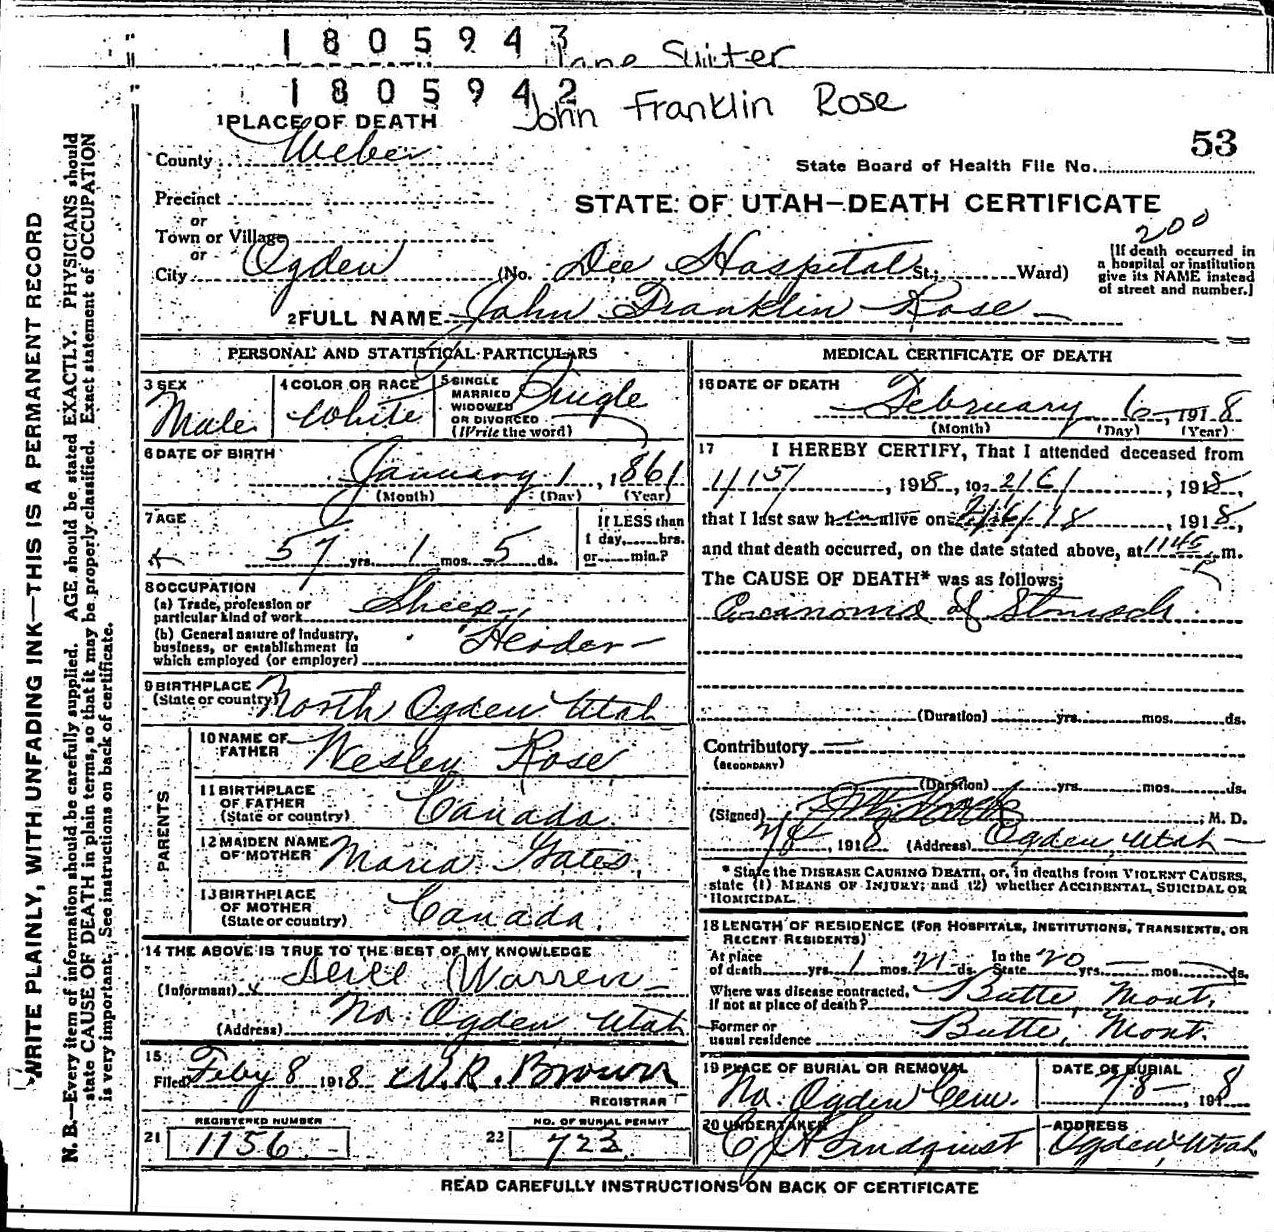 1805943
Jane Suiter
1805942
John Franklin Rose
1 PLACE OF DEATH
County Weber
53
State Board of Health File No.
Precinct
STATE OF UTAH—DEATH CERTIFICATE
or
Town or Village
or
200
City Ogden (No. Dee Hospital St.; Ward)
[If death occurred in a hospital or institution give its NAME instead of street and number.]
2 FULL NAME John Franklin Rose
PERSONAL AND STATISTICAL PARTICULARS
3 SEX
Male
4 COLOR OR RACE
White
5 SINGLE MARRIED WIDOWED OR DIVORCED (Write the word)
Single
6 DATE OF BIRTH
January 1, 1861
(Month) (Day) (Year)
7 AGE
57 yrs. 1 mos. 5 ds.
If LESS than 1 day, hrs. or min.?
8 OCCUPATION
(a) Trade, profession or particular kind of work Sheep
(b) General nature of industry, business, or establishment in which employed (or employer) Herder
9 BIRTHPLACE
(State or country) North Ogden Utah
PARENTS
10 NAME OF FATHER Wesley Rose
11 BIRTHPLACE OF FATHER (State or country) Canada
12 MAIDEN NAME OF MOTHER Maria Gates
13 BIRTHPLACE OF MOTHER (State or country) Canada
14 THE ABOVE IS TRUE TO THE BEST OF MY KNOWLEDGE
(Informant) Warren
(Address) No. Ogden, Utah
15
Filed Feby 8 1918 W. R. Brown
REGISTRAR
REGISTERED NUMBER
21 1156
NO. OF BURIAL PERMIT
22 723
MEDICAL CERTIFICATE OF DEATH
16 DATE OF DEATH
February 6 1918
(Month) (Day) (Year)
17 I HEREBY CERTIFY, That I attended deceased from
1/15/, 1918, to 2/6/, 1918,
that I last saw him alive on 2/6/18, 1918,
and that death occurred, on the date stated above, at 1145 m.
The CAUSE OF DEATH* was as follows:
Carcanoma of Stomach
(Duration) yrs. mos. ds.
Contributory
(SECONDARY)
(Duration) yrs. mos. ds.
(Signed) , M. D.
2/8/, 1918 (Address) Ogden, Utah
* State the DISEASE CAUSING DEATH, or, in deaths from VIOLENT CAUSES, state (1) MEANS OF INJURY; and (2) whether ACCIDENTAL, SUICIDAL OR HOMICIDAL.
18 LENGTH OF RESIDENCE (FOR HOSPITALS, INSTITUTIONS, TRANSIENTS, OR RECENT RESIDENTS)
At place of death yrs. 1 mos. 21 ds. In the State 20 yrs. mos. ds.
Where was disease contracted, if not at place of death? Butte, Mont.
Former or usual residence Butte, Mont.
19 PLACE OF BURIAL OR REMOVAL
No. Ogden Cem.
DATE OF BURIAL
2/8, 1918
20 UNDERTAKER
Lindquist
ADDRESS
Ogden, Utah
READ CAREFULLY INSTRUCTIONS ON BACK OF CERTIFICATE
WRITE PLAINLY, WITH UNFADING INK—THIS IS A PERMANENT RECORD
N. B.—Every item of information should be carefully supplied. AGE should be stated EXACTLY. PHYSICIANS should
state CAUSE OF DEATH in plain terms, so that it may be properly classified. Exact statement of OCCUPATION
is very important. See instructions on back of certificate.